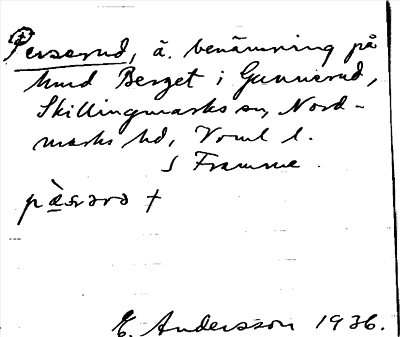 Perserud, ä. benämning på
hmd Berget i Gunnerud,
Skillingmarks sn, Nord-
marks hd, Vrml l.
S Framme.
pæ̀sərə †
E. Andersson 1936.